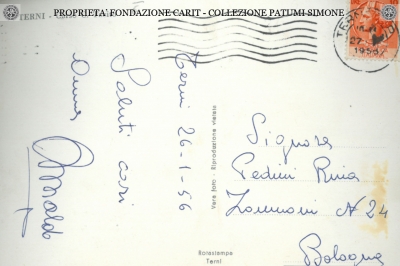 PROPRIETA' FONDAZIONE CARIT - COLLEZIONE PATUMI SIMONE
TERNI -
Terni 26-1-56
Saluti cari
Arnaldo
Vera foto - Riproduzione vietata
Rotostampa
Terni
Signora
Pedini Rina
Zamboni N 24
Bologna
1956